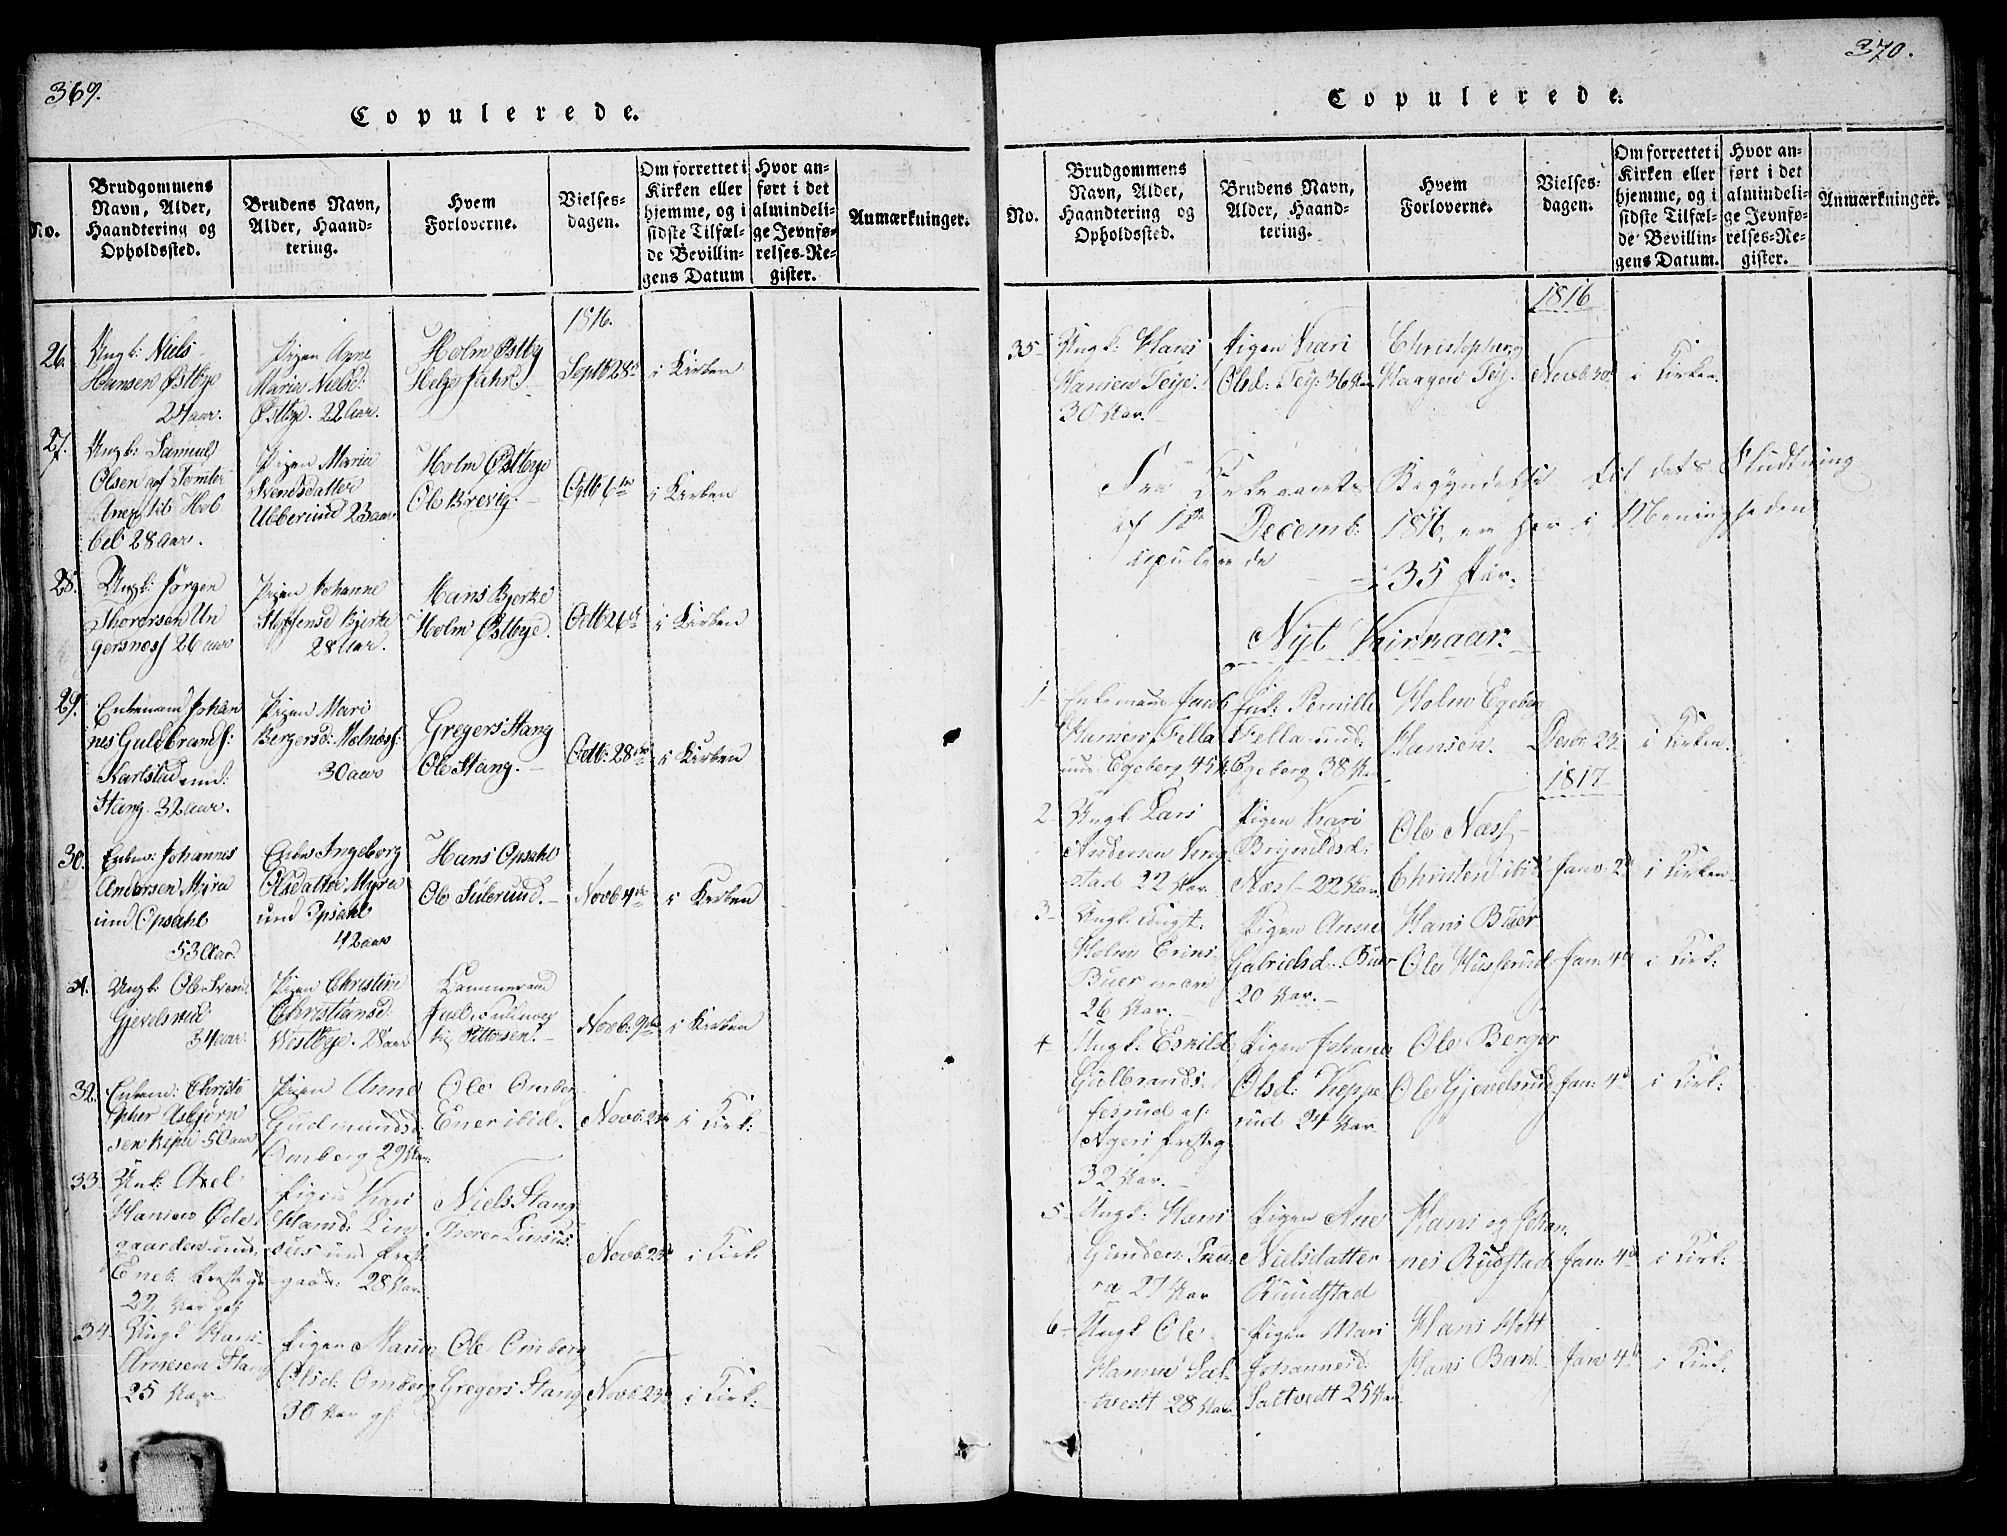 369.
Copulerede.
No.
Brudgommens
Navn, Alder,
Haandtering og
Opholdssted.
Brudens Navn,
Alder, Haand-
tering.
Hvem
Forloverne.
Vielses-
dagen.
Om forrettet i
Kirken eller
hjemme, og i
sidste Tilfæl-
de Bevillin-
gens Datum
Hvor an-
ført i det
almindeli-
ge Jevnfø-
relses-Re-
gister.
Anmærkninger.
1816.
26.
Ungk: Niels
Hansen Østbye
24 aar.
Pigen Anne
Maria Nielsd:
Østbye. 22 Aar.
Holm Østby
Helge Fahr
Septb 28de
i Kirken
27.
Ungk: Samuel
Olsen af Tomter
Anex til Hob
28 Aar.
Pigen Maria
Svendsdatter
Ubberund 23 aar
Holm Østbye
Ole Brevig.
Octb 6te
i Kirken
28.
Ungk: Jørgen
Thorersen Un
gersness 26 aar
Pigen Johanne
Steffensd Bjerke
28 Aar.
Hans Bjerke
Holm Østbye.
Octb 26de
i Kirken
29.
Enkemand Johan
nes Guldbrands:
Karlstad und:
Stang. 32 aar.
Pigen Mari
Bergersd: Molness:
30 aar
Gregers Stang
Ole Stang.
Octb: 28de
i Kirken
30.
Enkem: Johannes
Andersen Myra
und Opsahl
53 Aar.
Enken Ingeborg
Olsdatter Myra
und Opsahl
42 aar
Hans Opsahl
Ole Sulerund.
Novb 4de
i Kirken
31.
Ungk: Ole Svend
Gjevelsrud
34 aar.
Pigen Christine
Christiansd
Westbye. 28 aar
Kammerraad
Pettersen.
Novb: 9de
i Kirken
32.
Enkem: Christo
pher Asbjørn
sen 50 aar
Pigen Anne
Gudmundsd:
Omberg 29 Aar
Ole Omberg
Ener ibid.
Novb. 23de
i Kirk:
33.
Unk: Axel
Hansen Øde
gaarden und:
Eneb. Præstegd
22 Aar gl:
Pigen Kari
Hansd: Lin
sus und Præst
gaard: 28 Aar.
Niels Stang
Thorer Linsus.
Novb. 23de
i Kirk:
34.
Ungk Hans
Arnesen Stang
25 Aar
Pigen Maria
Olsd: Omberg
30 Aar gl:
Ole Omberg
Gregers Stang
Novb. 23de
i Kirk:
370.
Copulerede.
No.
Brudgommens
Navn, Alder,
Haandtering og
Opholdssted.
Brudens Navn,
Alder, Haand-
tering.
Hvem
Forloverne.
Vielses-
dagen.
Om forrettet i
Kirken eller
hjemme, og i
sidste Tilfæl-
de Bevillin-
gens Datum.
Hvor an-
ført i det
almindeli-
ge Jevnfø-
relses-Re-
gister.
Anmærkninger.
1816
35
Ungk: Hans
Hansen Teje.
30 Aar.
Pigen Kari
Olsd: Tej: 36 Aar
Christopher og
Haagen Tej.
Novb 30te
i Kirken.
Fra Kirkeaarets Begyndelse til dets Sluttning
Decemb: 1816, er her i Menigheden
copulerede
35 Par.
Nyt Kirkaar.
1
Enkemand Jacob
Hansen Fella
und. Egeberg 45 A:
Enk: Pernille
Fella und.
Egeberg 38 Aar
Holm Egeberg
Hansen.
Decbr 23
i Kirken.
1817
2
Ungk: Lars
Andersen Krog
stad 22 Aar.
Pigen Kari
Brynildsd:
Næss 22 Aar.
Ole Næss
Christen ibid
Janv. 2de
i Kirken
3
Ungk:
Holm Erins
Buer
26 Aar.
Pigen Anne
Gabrielsd: Buer
20 Aar.
Hans Buer
Ole Husserud
Jan: 4de
i Kirk:
4
Ungk: Eskild
Gulbrands:
32 Aar.
Pigen Johane
Olsd: Keppe
rud 24 Aar
Ole Berger
Ole Gjevelsrud
Jan: 4de
i Kirk:
5
Ungk: Hans
Gunders:
27 Aar
Pigen Ane
Nielsdatter
Rundstad
Hans og Johan
nes Rudstad
Jan: 4de
i Kirk:
6
Ungk Ole
Hansen Sal
tvedt 28 Aar
Pigen Mari
Johannesd:
Saltvedt 25 Aar
Hans
Hans
Jan 4de
i Kirk: